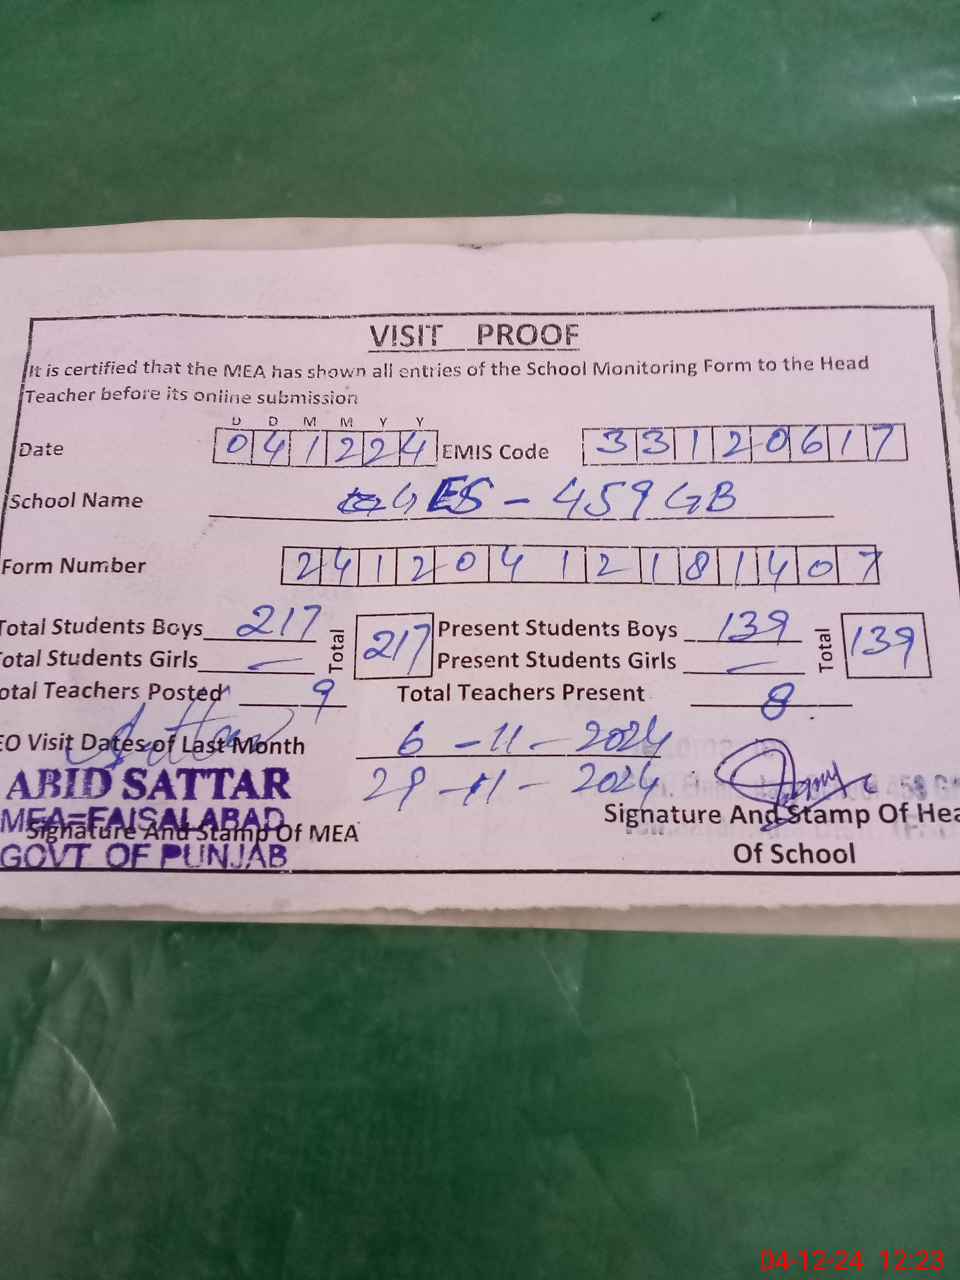 VISIT PROOF
It is certified that the MEA has shown all entries of the School Monitoring Form to the Head
Teacher before its online submission
D D M M Y Y
Date 041224 EMIS Code 33120617
School Name GES - 459 GB
Form Number 24120412181407
Total Students Boys 217 Total 217 Present Students Boys 139 Total 139
Total Students Girls — Present Students Girls —
otal Teachers Posted 9 Total Teachers Present 8
EO Visit Dates of Last Month 6 - 11 - 2024
29 - 11 - 2024
ABID SATTAR
MEA=FAISALABAD
GOVT OF PUNJAB
Signature And Stamp Of MEA
Signature And Stamp Of Hea
Of School
04-12-24 12:23